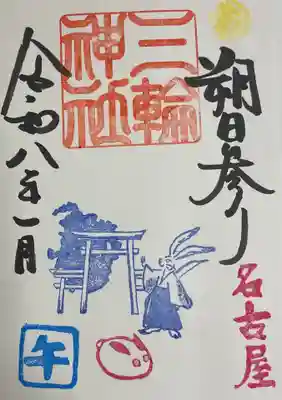 朔日参り
名古屋
三輪
神社
令和八年一月
午